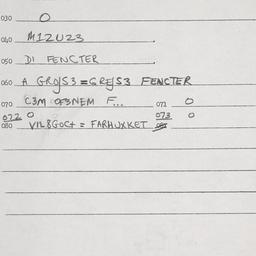 030 O
040 M12U23
050 DI FENCTER
060 A GROJS3 = GREJS3 FENCTER
070 C3M OF3NEM F... 071 O
072 O 073 O
080 VIL8GOCT = FARHUXKET